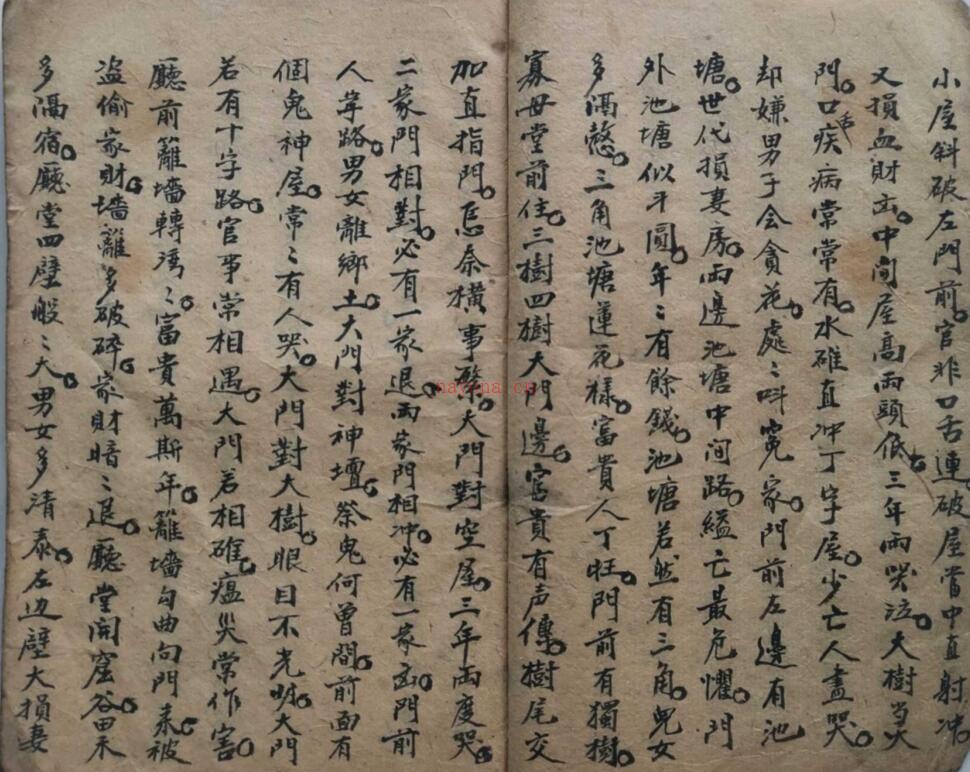 小屋斜破左門前。官非口舌連。破屋當中直射冲。
又損血財凶。中间屋高兩頭低。三年兩哭泣。大樹当大
門。口疾病常常有。水碓直冲丁字屋。少亡人盡哭。
却嫌男子会貪花。處〻叫冤家。門前左邊有池
塘。世代損妻房。兩邊池塘中间路。縊亡最危懼。門
外池塘似半圓。年〻有餘錢。池塘若然有三角。兒女
多隔愁。三角池塘蓮花樣。富貴人丁旺。門前有獨樹。
寡母堂前住。三樹四樹大門邊。富貴有声傳。樹尾交
加直指門。忌奈橫事祭。大門對空屋。三年兩度哭。
二家門相對。必有一家退。兩家門相冲。必有一家凶。門前
人字路。男女離鄉土。大門對神壇。祭鬼何曾間。前面有
個鬼神屋。常〻有人哭。大門對大樹。眼目不光明。大門
若有十字路。官事常相遇。大門若相碓。瘟災常作害。
廳前籬墻轉湾〻。富貴萬斯年。籬墻勾曲向門來。被
盜偷家財。墻籬多破碎。家財暗〻退。廳堂開窟谷。男不
多隔宿。廳堂四壁般〻大。男女多清泰。左边壁大損妻
naruna.cn